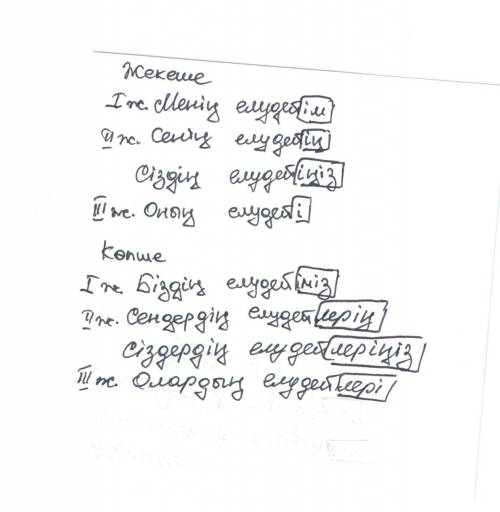 Жекеше
I ж. Менің елудейім
II ж. Сенің елудейің
Сіздің елудейіңіз
III ж. Оның елудейі
Көпше
I ж. Біздің елудейіміз
II ж. Сендердің елудейлерің
Сіздердің елудейлеріңіз
III ж. Олардың елудейлері